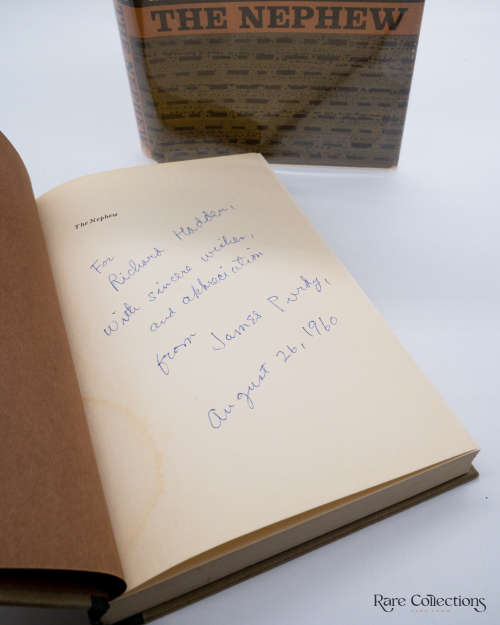 THE NEPHEW
The Nephew
For
Richard Hadden,
With sincere wishes,
and appreciation
from James Purdy,
August 26, 1960
Rare Collections